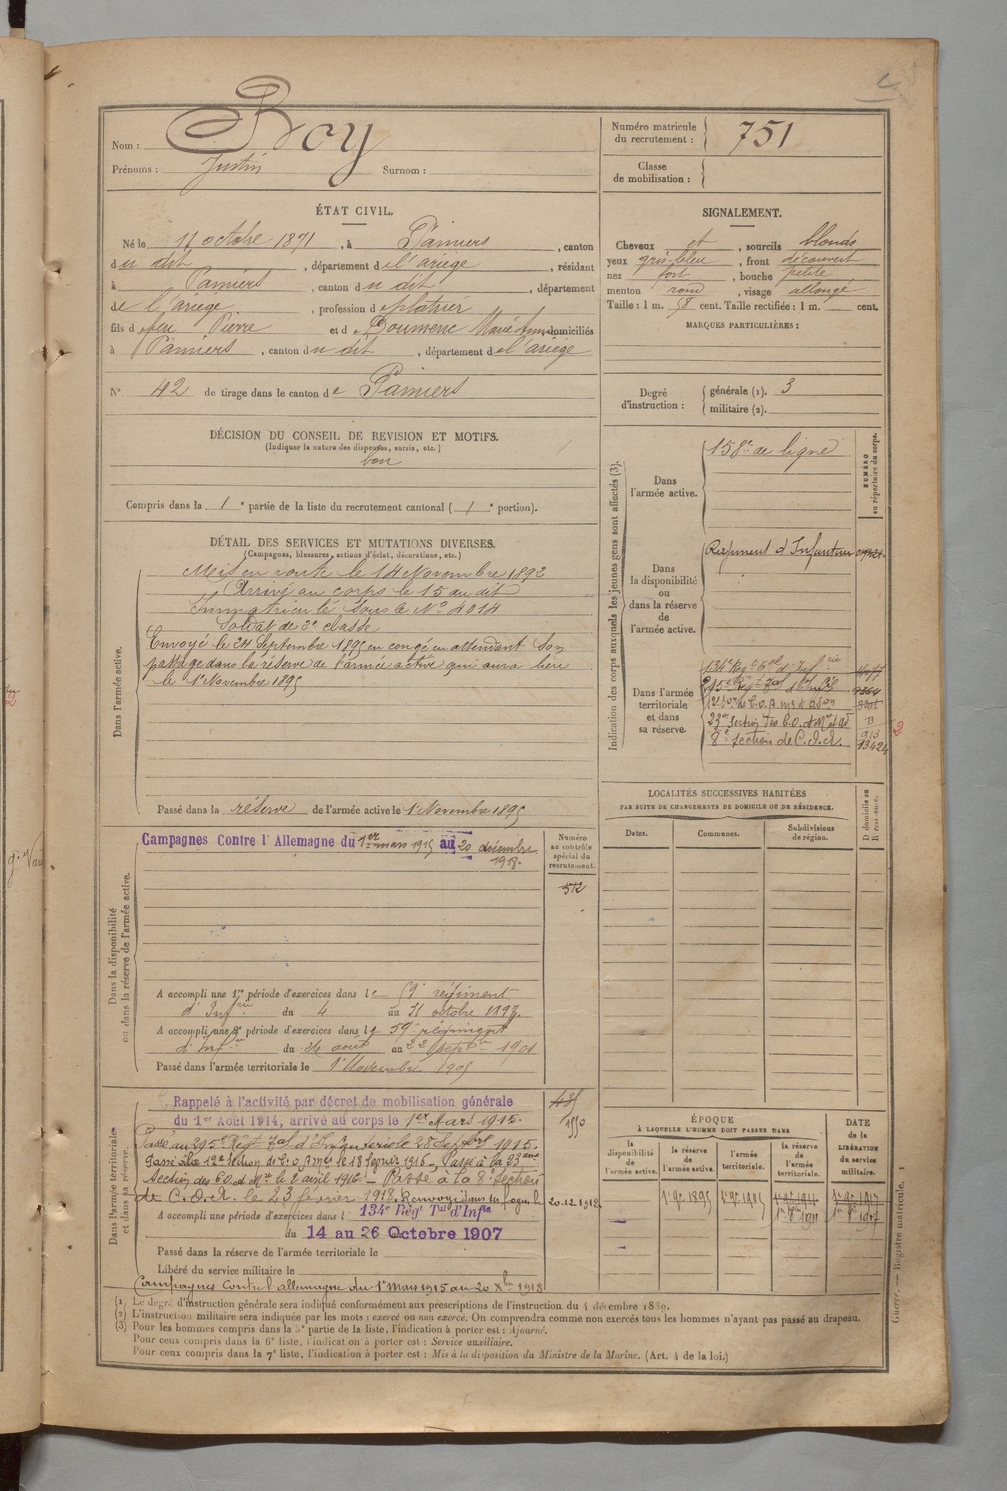 Nom : Roy
Prénoms : Justin Surnom :
Numéro matricule
du recrutement : 751
Classe
de mobilisation :
ÉTAT CIVIL.
Né le 11 octobre 1871, à Pamiers, canton
du dit, département de l'ariège, résidant
à Pamiers, canton du dit, département
de l'ariège, profession de platrier
fils de feu Pierre et de Doumenc Marie domiciliés
à Pamiers, canton du dit, département de l'ariège
N° 42 de tirage dans le canton de Pamiers
SIGNALEMENT.
Cheveux et, sourcils blonds
yeux gris-bleu, front découvert
nez fort, bouche petite
menton rond, visage allongé
Taille : 1 m. 58 cent. Taille rectifiée : 1 m. cent.
MARQUES PARTICULIÈRES :
Degré
d'instruction :
générale (1). 3
militaire (2).
DÉCISION DU CONSEIL DE REVISION ET MOTIFS.
(Indiquer la nature des dispenses, sursis, etc.)
bon
Compris dans la 1e partie de la liste du recrutement cantonal ( 1e portion).
DÉTAIL DES SERVICES ET MUTATIONS DIVERSES.
(Campagnes, blessures, actions d'éclat, décorations, etc.)
Dans l'armée active.
Mis en route le 14 Novembre 1892
Arrivé au corps le 15 au dit
Immatriculé sous le No 4014
Soldat de 2e classe
Envoyé le 24 Septembre 1895 en congé en attendant son
passage dans la réserve de l'armée active qui aura lieu
le 1er Novembre 1895
Passé dans la réserve de l'armée active le 1er Novembre 1895
Indication des corps auxquels les jeunes gens sont affectés (3).
NUMÉRO
au répertoire du corps.
Dans
l'armée active.
158e de ligne
Dans
la disponibilité
ou dans la réserve
de
l'armée active.
Régiment d'Infanterie
Dans l'armée
territoriale
et dans
sa réserve.
134e Régt Tal d'Infrie
295e Régt Tal d'Infie
12e Son de C.O.A. me et adon
23me Section des C.O. et Mre et ad
8e Section de C.O.A.
B
913
13424
2
LOCALITÉS SUCCESSIVES HABITÉES
PAR SUITE DE CHANGEMENTS DE DOMICILE OU DE RÉSIDENCE.
Dates.
Communes.
Subdivisions
de région.
D domicile ou
R résidence.
Dans la disponibilité
ou dans la réserve de l'armée active.
Campagnes Contre l'Allemagne du 1er mars 1915 au 20 décembre
1918.
Numéro
au contrôle
spécial du
recrutement.
512
A accompli une 1re période d'exercices dans le 59e régiment
d'Infrie du 4 au 31 octobre 1897.
A accompli une 2e période d'exercices dans le 59e régiment
d'Infrie du 26 août au 22 septbre 1901
Passé dans l'armée territoriale le 1er Novembre 1905
Dans l'armée territoriale
et dans sa réserve.
Rappelé à l'activité par décret de mobilisation générale
du 1er Août 1914, arrivé au corps le 1er Mars 1915.
Passé au 295e Régt Tal d'Infanterie le 28 Septbre 1915.
Passé à la 12e Section de C.O. A mre le 18 février 1916 - Passé à la 23ème
Section des C.O. et Mre le 2 avril 1916 - Passé à la 8e Section
de C.O.A. le 23 février 1918. Renvoyé dans ses foyers le 20.12.1918
1550
A accompli une période d'exercices dans l' 134e Régt Tal d'Infie
du 14 au 26 Octobre 1907
Passé dans la réserve de l'armée territoriale le
Libéré du service militaire le
Campagnes Contre l'allemagne du 1er mars 1915 au 20 Xbre 1918
ÉPOQUE
À LAQUELLE L'HOMME DOIT PASSER DANS
la
disponibilité
de
l'armée active.
la réserve
de
l'armée active.
l'armée
territoriale.
la réserve
de
l'armée
territoriale.
DATE
de la
LIBÉRATION
du service
militaire.
1er 9bre 1895
1er 9bre 1905
1er 9bre 1911
1er 9bre 1917
(1) Le degré d'instruction générale sera indiqué conformément aux prescriptions de l'instruction du 4 décembre 1889.
(2) L'instruction militaire sera indiquée par les mots : exercé ou non exercé. On comprendra comme non exercés tous les hommes n'ayant pas passé au drapeau.
(3) Pour les hommes compris dans la 5e partie de la liste, l'indication à porter est : Ajourné.
Pour ceux compris dans la 6e liste, l'indication à porter est : Service auxiliaire.
Pour ceux compris dans la 7e liste, l'indication à porter est : Mis à la disposition du Ministre de la Marine. (Art. 4 de la loi.)
Guerre. — Registre matricule. 1